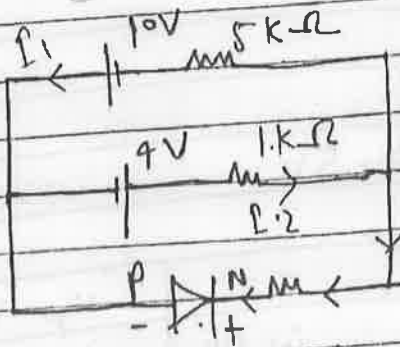 I₁ 10V 5 K Ω
4V 1.KΩ
I.2
P N
- +